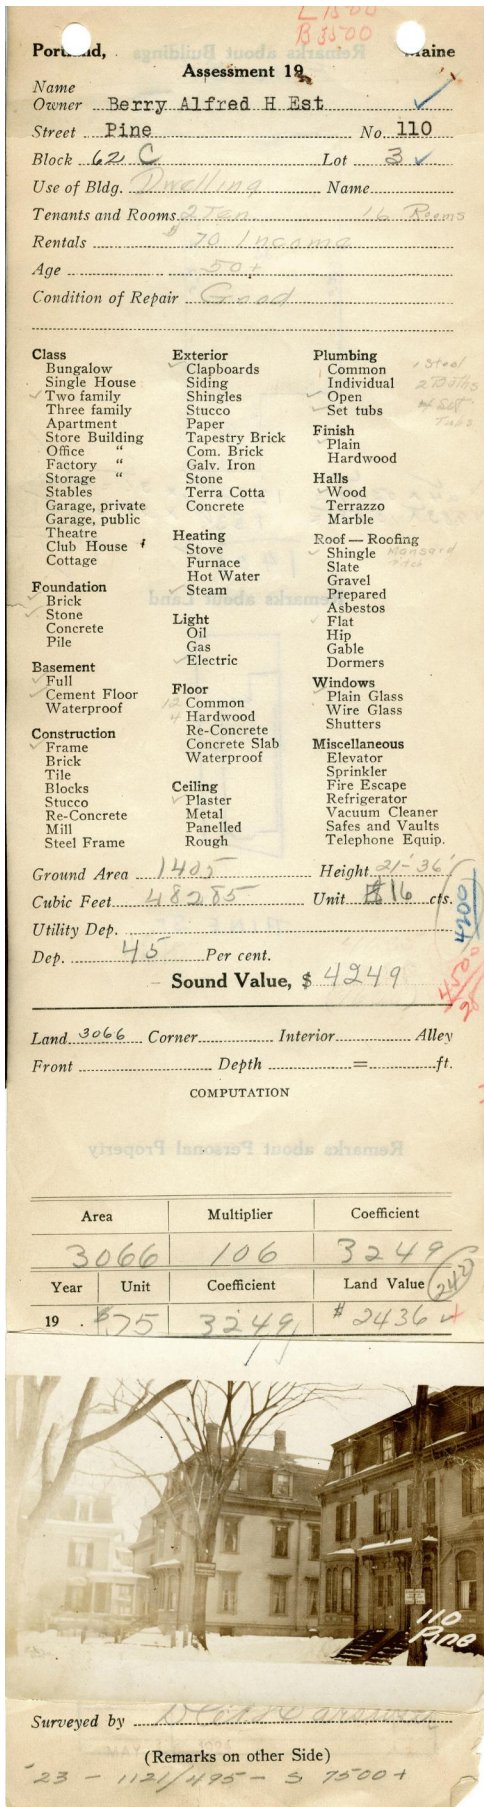 L 1500
B 3500
Portland, Maine
Assessment 19
Name
Owner Berry Alfred H Est
Street Pine No. 110
Block 62 C Lot 3
Use of Bldg. Dwelling Name
Tenants and Rooms 2 Ten 16 Rooms
Rentals $70 Income
Age 50+
Condition of Repair Good
Class
Bungalow
Single House
Two family
Three family
Apartment
Store Building
Office "
Factory "
Storage "
Stables
Garage, private
Garage, public
Theatre
Club House
Cottage
Foundation
Brick
Stone
Concrete
Pile
Basement
Full
Cement Floor
Waterproof
Construction
Frame
Brick
Tile
Blocks
Stucco
Re-Concrete
Mill
Steel Frame
Exterior
Clapboards
Siding
Shingles
Stucco
Paper
Tapestry Brick
Com. Brick
Galv. Iron
Stone
Terra Cotta
Concrete
Heating
Stove
Furnace
Hot Water
Steam
Light
Oil
Gas
Electric
Floor
12 Common
4 Hardwood
Re-Concrete
Concrete Slab
Waterproof
Ceiling
Plaster
Metal
Panelled
Rough
Plumbing
Common 1 Stool
Individual 2 Baths
Open 4 Set
Set tubs Tubs
Finish
Plain
Hardwood
Halls
Wood
Terrazzo
Marble
Roof — Roofing
Shingle Mansard
Slate Pitch
Gravel
Prepared
Asbestos
Flat
Hip
Gable
Dormers
Windows
Plain Glass
Wire Glass
Shutters
Miscellaneous
Elevator
Sprinkler
Fire Escape
Refrigerator
Vacuum Cleaner
Safes and Vaults
Telephone Equip.
Ground Area 1405 Height 21-36'
Cubic Feet 48285 Unit $16 cts.
4200
Utility Dep.
Dep. 45 Per cent.
Sound Value, $ 4249
Land 3066 Corner Interior Alley
Front Depth = ft.
COMPUTATION
Area Multiplier Coefficient
3066 106 3249
Year Unit Coefficient Land Value
19 $.75 3249 $2436
110
Pine
Surveyed by
(Remarks on other Side)
'23 - 1121/495 - S 7500+